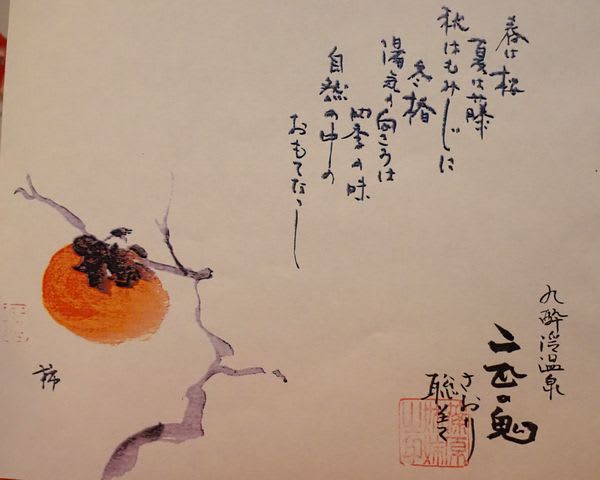 春は桜
夏は藤
秋はもみじに
冬椿
湯気の向こうは
四季の味
自然の中の
おもてなし
九酔渓温泉
二匹の鬼
さおり
柿